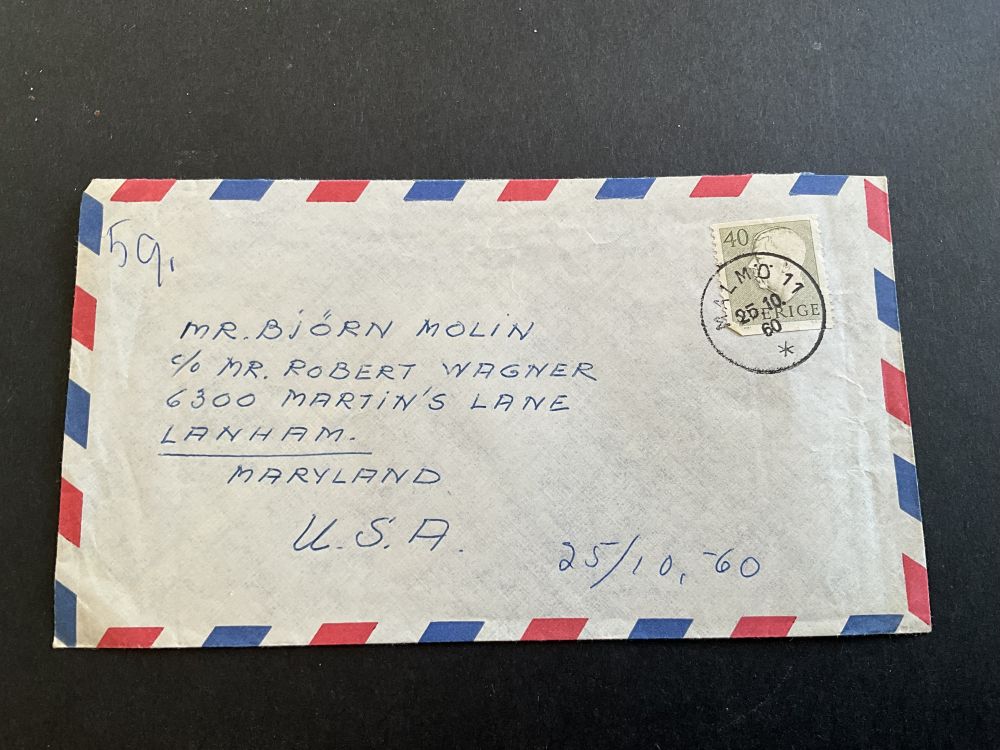 59.
40
SVERIGE
MALMÖ 11
25.10.
60
*
MR. BJÖRN MOLIN
c/o MR. ROBERT WAGNER
6300 MARTIN'S LANE
LANHAM.
MARYLAND
U.S.A.
25/10,-60